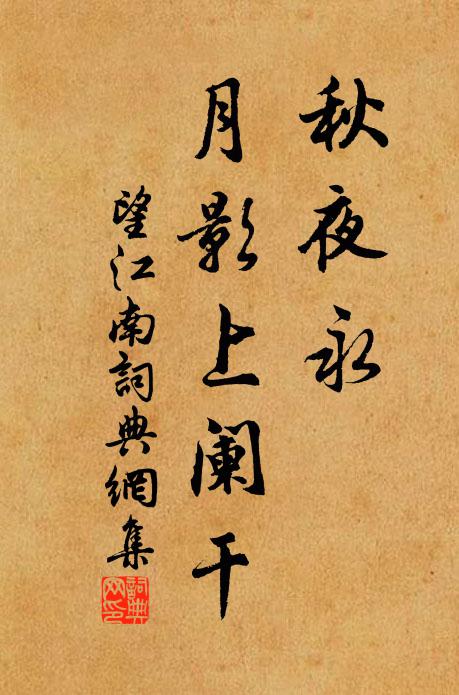 秋夜永
月影上阑干
望江南詞典網集
詞典网印